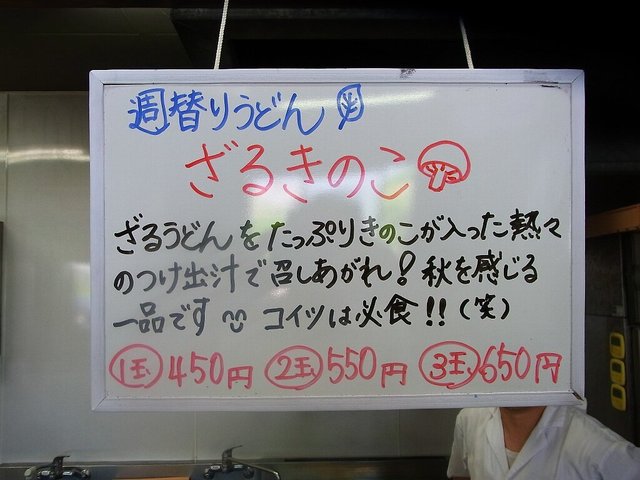 週替りうどん
ざるきのこ
ざるうどんをたっぷりきのこが入った熱々
のつけ出汁で召しあがれ!秋を感じる
一品です コイツは必食!!(笑)
1玉 450円 2玉 550円 3玉 650円